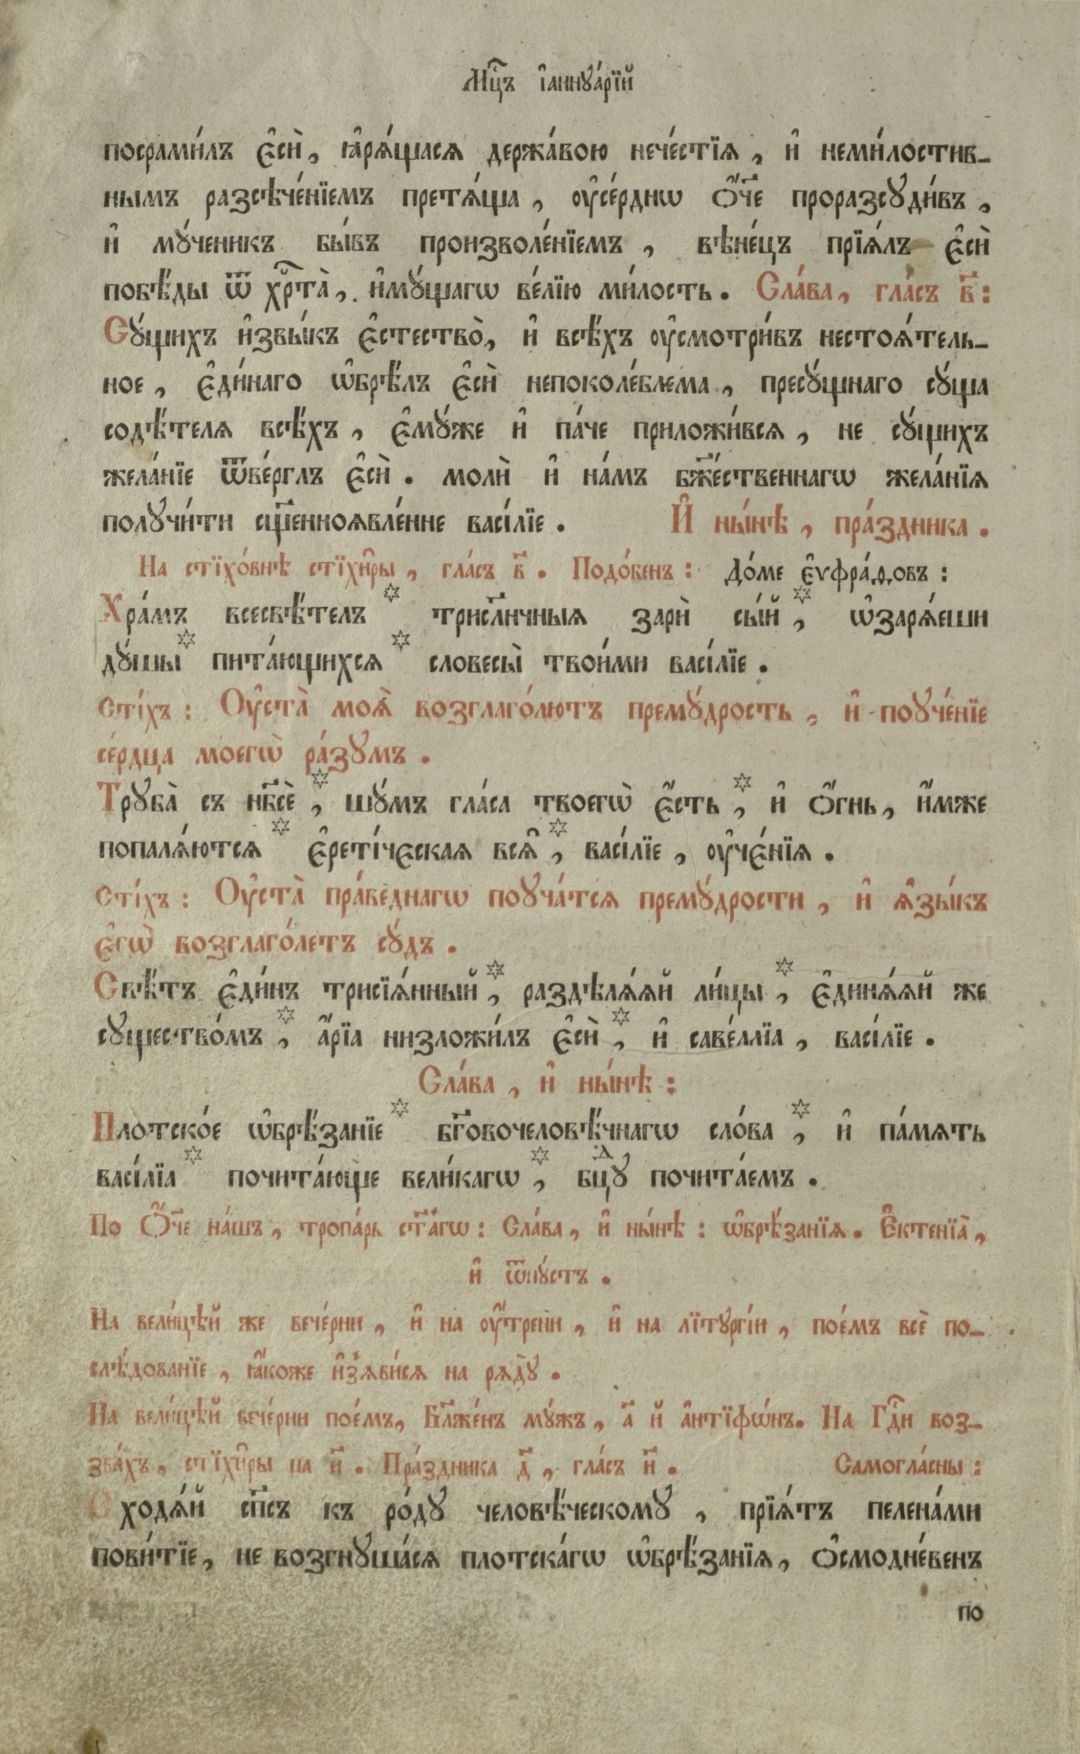 Мцⷭ҇ъ і҆аннꙋа́рїй
посрами́лъ є҆сѝ, ꙗ҆ря́щася держа́вою нече́стїя, и҆ неми́лостив-
нымъ разсѣче́нїемъ претѧ́ща, ᲂу҆се́рднѡ ѻ҆́ч҃е проразсꙋди́въ,
и҆ мꙋ́ченикъ бы́въ произволе́нїемъ, вѣне́цъ прїѧ́лъ є҆сѝ
побѣ́ды ѿ хрⷭ҇та̀, и҆мꙋ́щагѡ ве́лїю ми́лость. Сла́ва, гла́съ в҃:
Сꙋ́щихъ и҆звы́къ є҆стество̀, и҆ всѣ́хъ ᲂу҆смотри́въ нестоѧ́тель-
ное, є҆ди́наго ѡ҆брѣ́лъ є҆сѝ непоколе́блема, пресꙋ́щнаго сꙋ́ща
содѣ́телѧ всѣ́хъ, є҆мꙋ́же и҆ па́че приложи́всѧ, не сꙋ́щихъ
жела́нїе ѿве́рглъ є҆сѝ. молѝ и҆ на́мъ бж҃е́ственнагѡ жела́нїѧ
полꙋчи́ти сщ҃енноѧвле́нне васі́лїе. И҆ ны́нѣ, пра́здника.
На стїхо́внѣ стїхи̑ры, гла́съ в҃. Подо́бенъ: До́ме є҆ѵфра́ѳовъ:
Хра́мъ всесвѣ́телъ * трисл҃ичныѧ зарѝ сы́й, * ѡ҆зарѧ́еши
дꙋ́шы * пита́ющихсѧ * словесы̀ твои́ми васі́лїе.
Сті́хъ: Оу҆ста̀ моѧ̑ возглаго́лютъ премꙋ́дрость, и҆ поꙋче́нїе
се́рдца моегѡ̀ ра́зꙋмъ.
Трꙋба̀ съ нб҃сѐ, * шꙋ́мъ гла́са твоегѡ̀ є҆́сть, * и҆ ѻ҆́гнь, и҆́мже
попалѧ́ютсѧ * є҆рети́ческаѧ всѧ̑, * васі́лїе, ᲂу҆че́нїѧ.
Сті́хъ: Оу҆ста̀ пра́веднагѡ поꙋча́тсѧ премꙋ́дрости, и҆ ѧ҆зы́къ
є҆гѡ̀ возглаго́летъ сꙋ́дъ.
Свѣ́тъ є҆ди́нъ трисїѧ́нный, * раздѣлѧ́ѧй ли́цы, * є҆динѧ́ѧй же
сꙋщество́мъ, * а҆́рїа низложи́лъ є҆сѝ, * и҆ саве́ллїа, васі́лїе.
Сла́ва, и҆ ны́нѣ:
Плотско́е ѡ҆брѣ́занїе * бг҃овочеловѣ́чнагѡ сло́ва, * и҆ па́мѧть
васі́лїа * почита́юще вели́кагѡ, * бцⷣꙋ почита́емъ.
По Ѻ҆́ч҃е на́шъ, тропа́рь ст҃а́гѡ: Сла́ва, и҆ ны́нѣ: ѡ҆брѣ́занїѧ. Є҆ктенїа̀,
и҆ ѿпꙋ́стъ.
На вели́цѣй же вече́рни, и҆ на ᲂу҆́трени, и҆ на лїтꙋргі́и, пое́мъ всѐ по-
слѣ́дованїе, ꙗ҆́коже и҆з̾ѧви́сѧ на рѧ́дꙋ.
На вели́цѣй вече́рни пое́мъ, Бл҃же́нъ мꙋ́жъ, а҃ й а҆нтїфѡ́нъ. На Гдⷭ҇и воз-
зва́хъ, стїхи̑ры на и҃. Пра́здника д҃, гла́съ и҃. Самогла́сны:
Сходѧ́й сп҃съ къ ро́дꙋ человѣ́ческомꙋ, прїѧ́тъ пелена́ми
пови́тїе, не возгнꙋша́сѧ плотска́гѡ ѡ҆брѣ́занїѧ, ѻ҆смодне́венъ
по